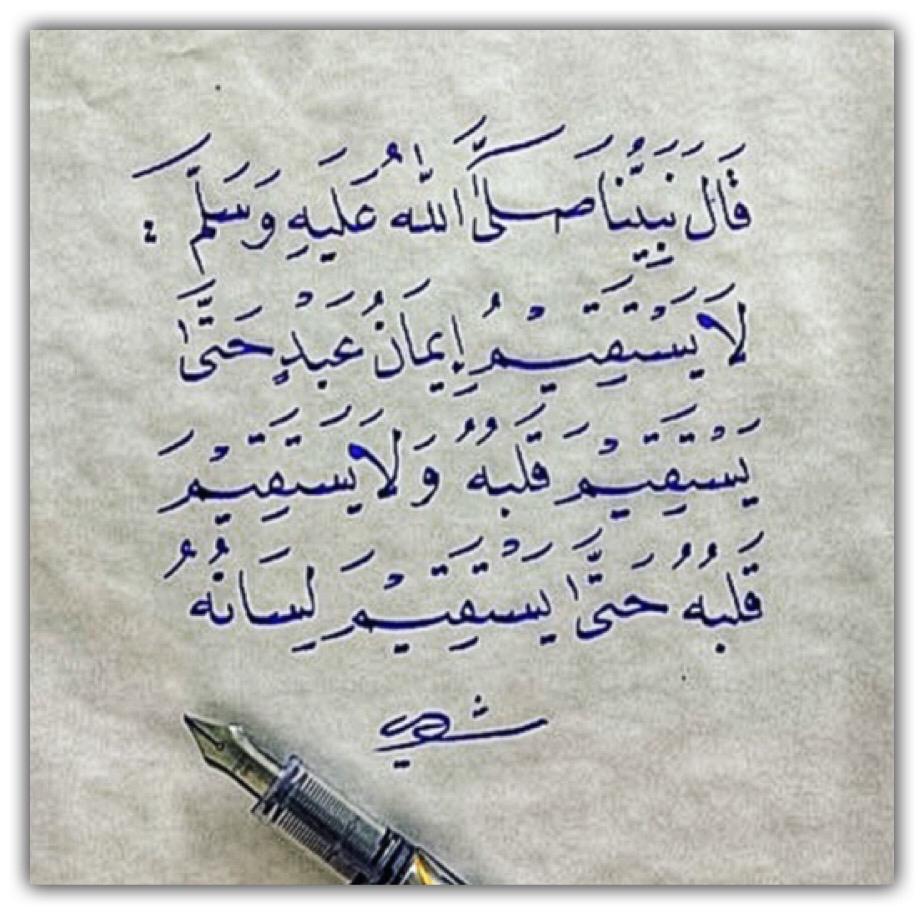 قَالَ نَبِيُّنَا صَلَّىٰ اللّٰهُ عَلَيهِ وَسَلَّمَ :
لَا يَسْتَقِيْمُ إِيمَانُ عَبْدٍ حَتَّىٰ
يَسْتَقِيْمَ قَلبُهُ وَلَا يَسْتَقِيْمَ
قَلبُهُ حَتَّىٰ يَسْتَقِيْمَ لِسَانُهُ